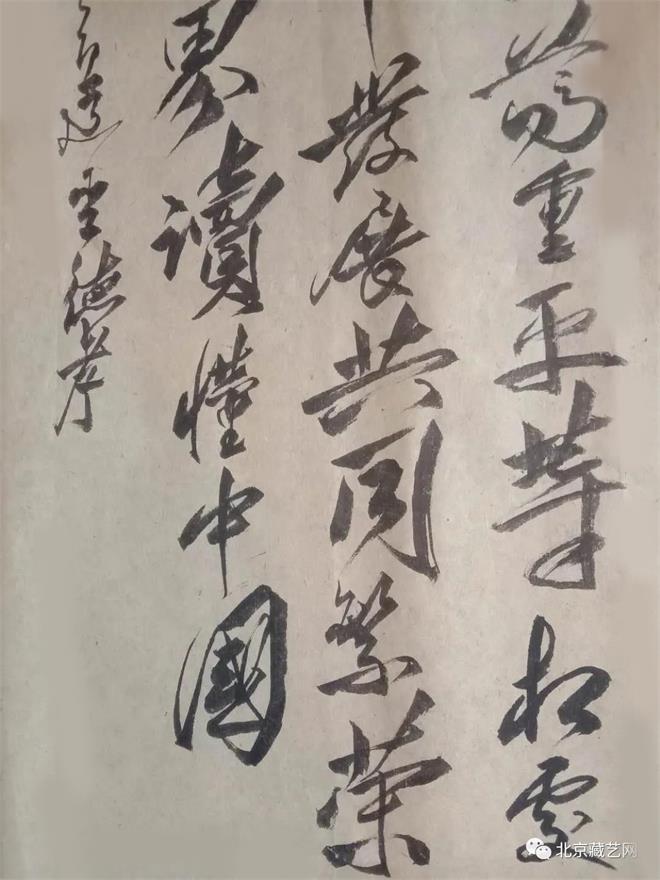 重平等相處
發展共同繁榮
界讀懂中國
王德孝
北京藏艺网